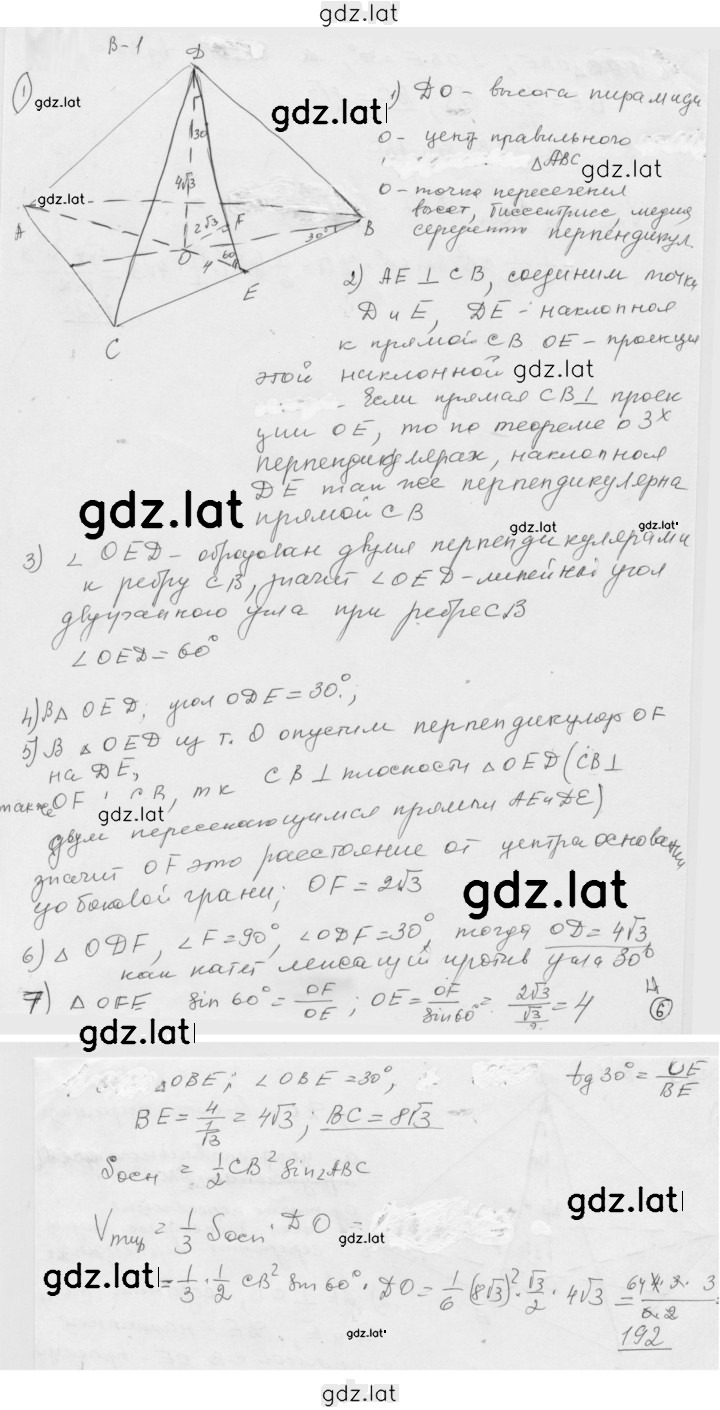 gdz.lat
В-1
1
gdz.lat
D
30°
4√3
2√3
F
A
O
4
60°
E
30°
B
C
gdz.lat
1) DO - высота пирамиды
O - центр правильного
△ABC
gdz.lat
O - точка пересечения
высот, биссектрисс, медиа
середенто перпендикул.
gdz.lat
2) AE ⊥ CB, соединим точки
D и E, DE - наклонная
к прямой CB OE - проекция
этой наклонной
gdz.lat
. Если прямая CB ⊥ проек
ции OE, то по теореме о 3х
перпендикулярах, наклонная
DE так же перпендикулярна
прямой CB
gdz.lat
gdz.lat
gdz.lat
3) ∠OED - образован двумя перпендикулярами
к ребру CB, значит ∠OED - линейный угол
двугранного угла при ребре CB
∠OED = 60°
4) В △ OED, угол ODE = 30°;
5) В △ OED из т. O опустим перпендикуляр OF
на DE,
CB ⊥ плоскости △OED (CB ⊥
также OF ⊥ CB, тк
gdz.lat
двум пересекающимся прямым AE и DE)
значит OF это расстояние от центра основания
до боковой грани; OF = 2√3
gdz.lat
6) △ ODF, ∠F = 90°, ∠ODF = 30°, тогда OD = 4√3
как катет лежащий против угла 30°
7) △ OFE sin 60° = OF/OE; OE = OF/sin60° = 2√3/(√3/2) = 4
6
gdz.lat
△OBE; ∠OBE = 30°, tg 30° = OE/BE
BE = 4/(1/√3) = 4√3; BC = 8√3
Sосн = 1/2 CB² sin∠ABC
gdz.lat
Vпир = 1/3 Sосн · DO =
gdz.lat
gdz.lat
= 1/3 · 1/2 CB² sin 60° · DO = 1/6 (8√3)² · √3/2 · 4√3 =
192
gdz.lat
gdz.lat